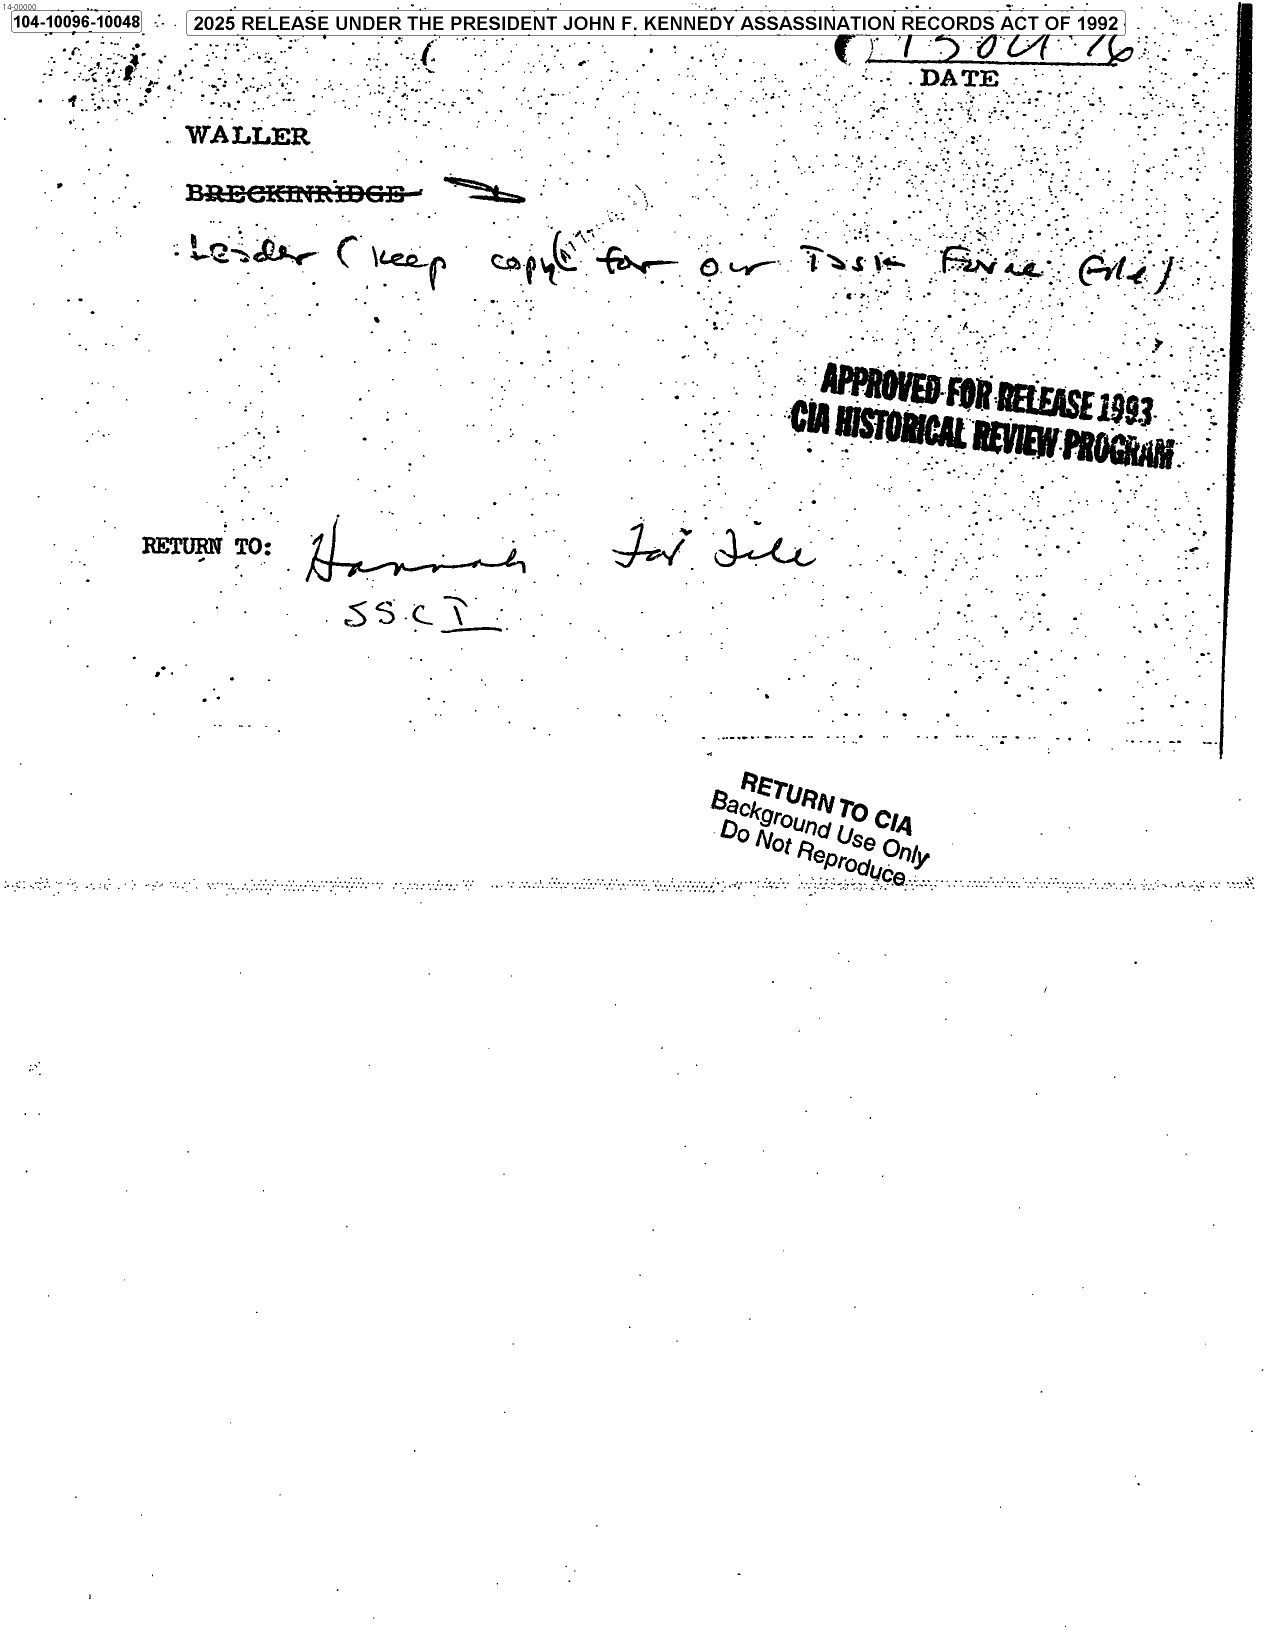 14-00000
104-10096-10048
2025 RELEASE UNDER THE PRESIDENT JOHN F. KENNEDY ASSASSINATION RECORDS ACT OF 1992
DATE
WALLER
BRECKINRIDGE
Leader (keep copy for our Task Force file)
APPROVED FOR RELEASE 1993
CIA HISTORICAL REVIEW PROGRAM
RETURN TO: Hannah For File
SSCI
RETURN TO CIA
Background Use Only
Do Not Reproduce